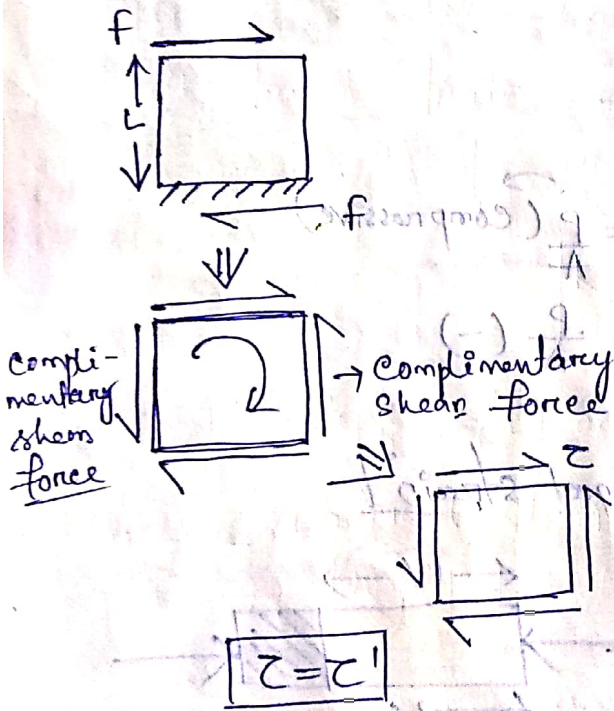 F
L
F
compli-
mentary
shear
force
→ complimentary
shear force
τ
τ = τ'